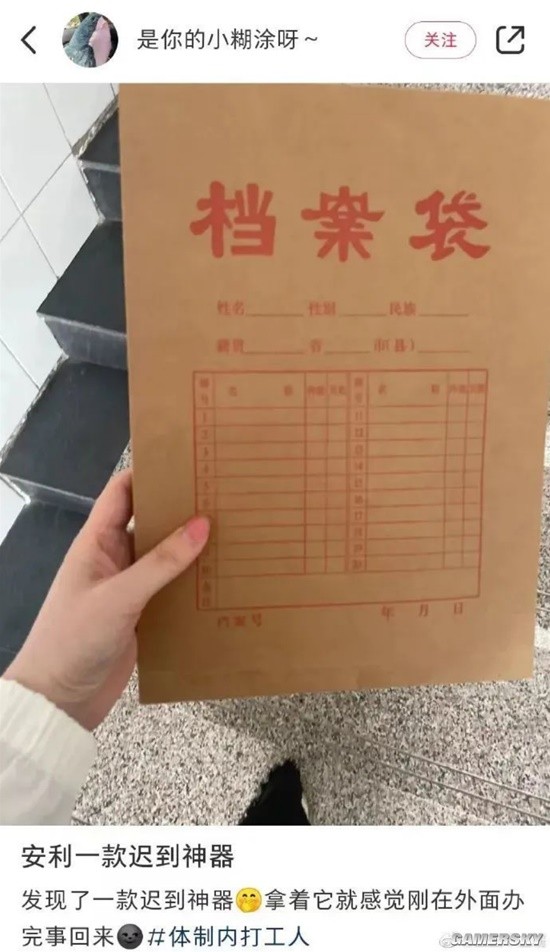 是你的小糊涂呀~
关注
档案袋
姓名 性别 民族
籍贯 省 市(县)
档案号 年 月 日
安利一款迟到神器
发现了一款迟到神器🤭拿着它就感觉刚在外面办
完事回来🌚#体制内打工人
GAMERSKY